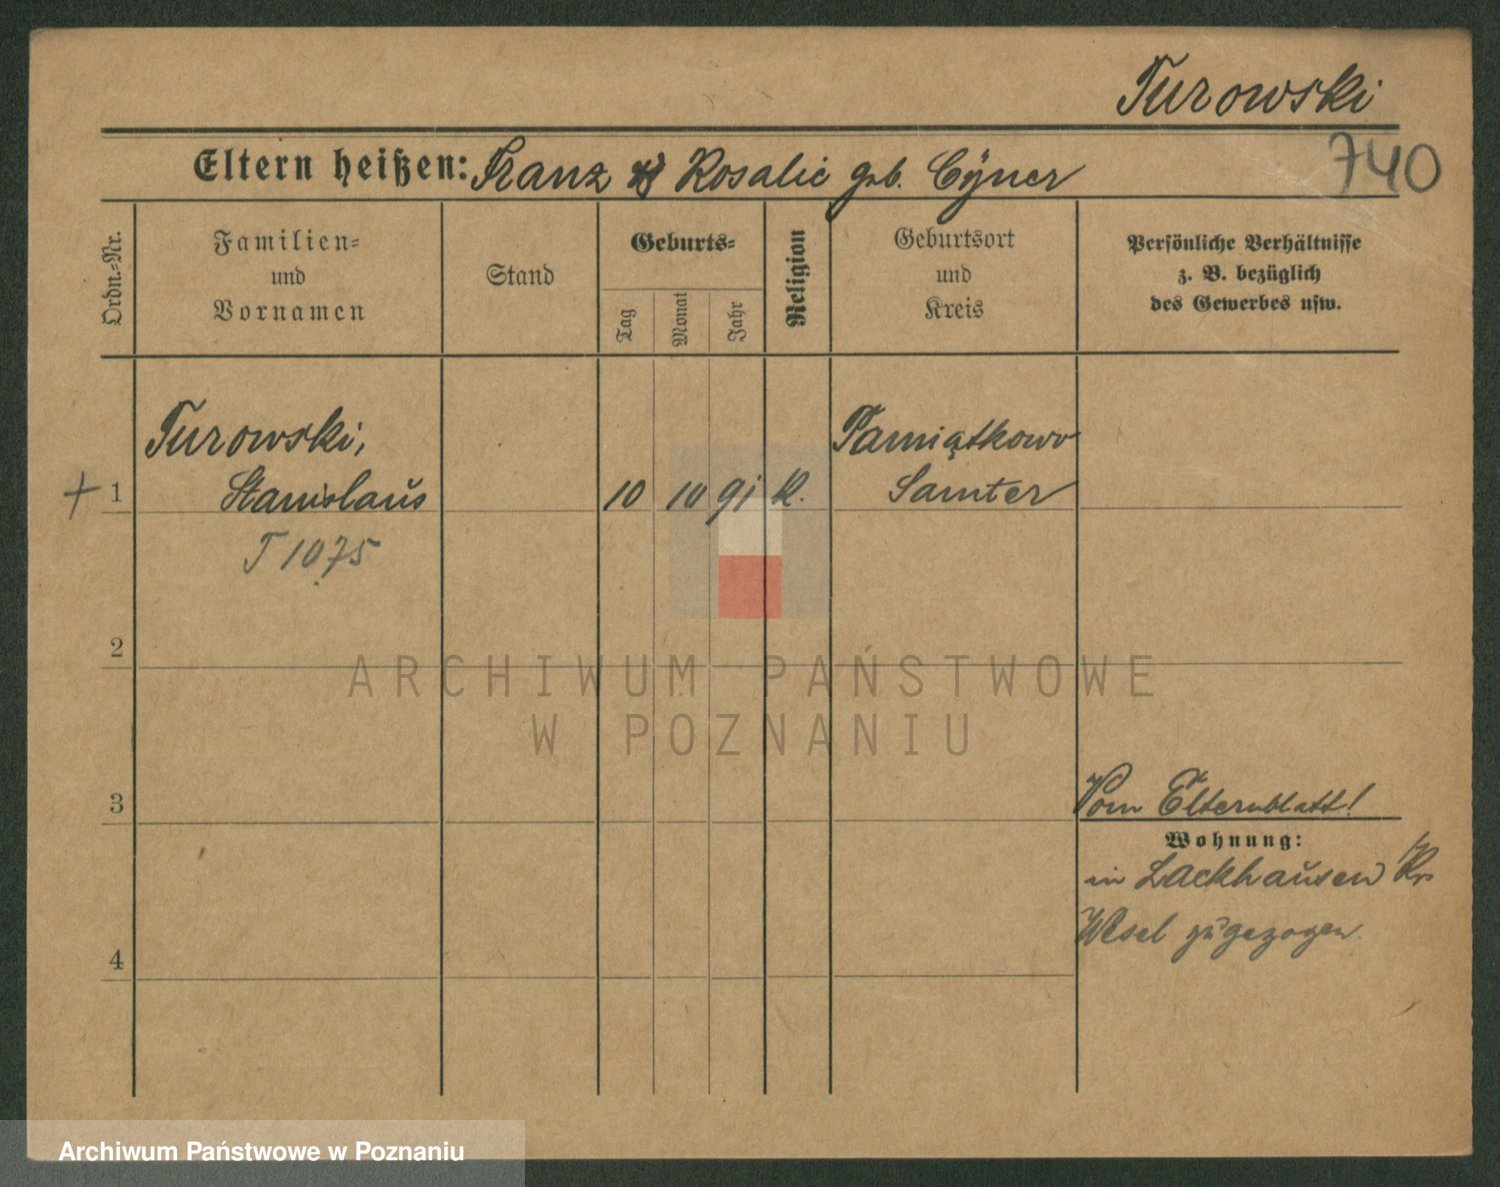 Turowski
Eltern heißen: Franz & Rosalie geb. Cÿner
740
Ordn.=Nr.
Familien=
und
Vornamen
Stand
Geburts=
Tag
Monat
Jahr
Religion
Geburtsort
und
Kreis
Persönliche Verhältnisse
z. B. bezüglich
des Gewerbes usw.
Turowski,
Pamiątkowo
+ 1
Stanislaus
10
10
91
K.
Samter
T 1075
2
ARCHIWUM PAŃSTWOWE
W POZNANIU
3
Vom Elternblatt!
Wohnung:
in Lackhausen Kr.
Wesel zugezogen.
4
Archiwum Państwowe w Poznaniu